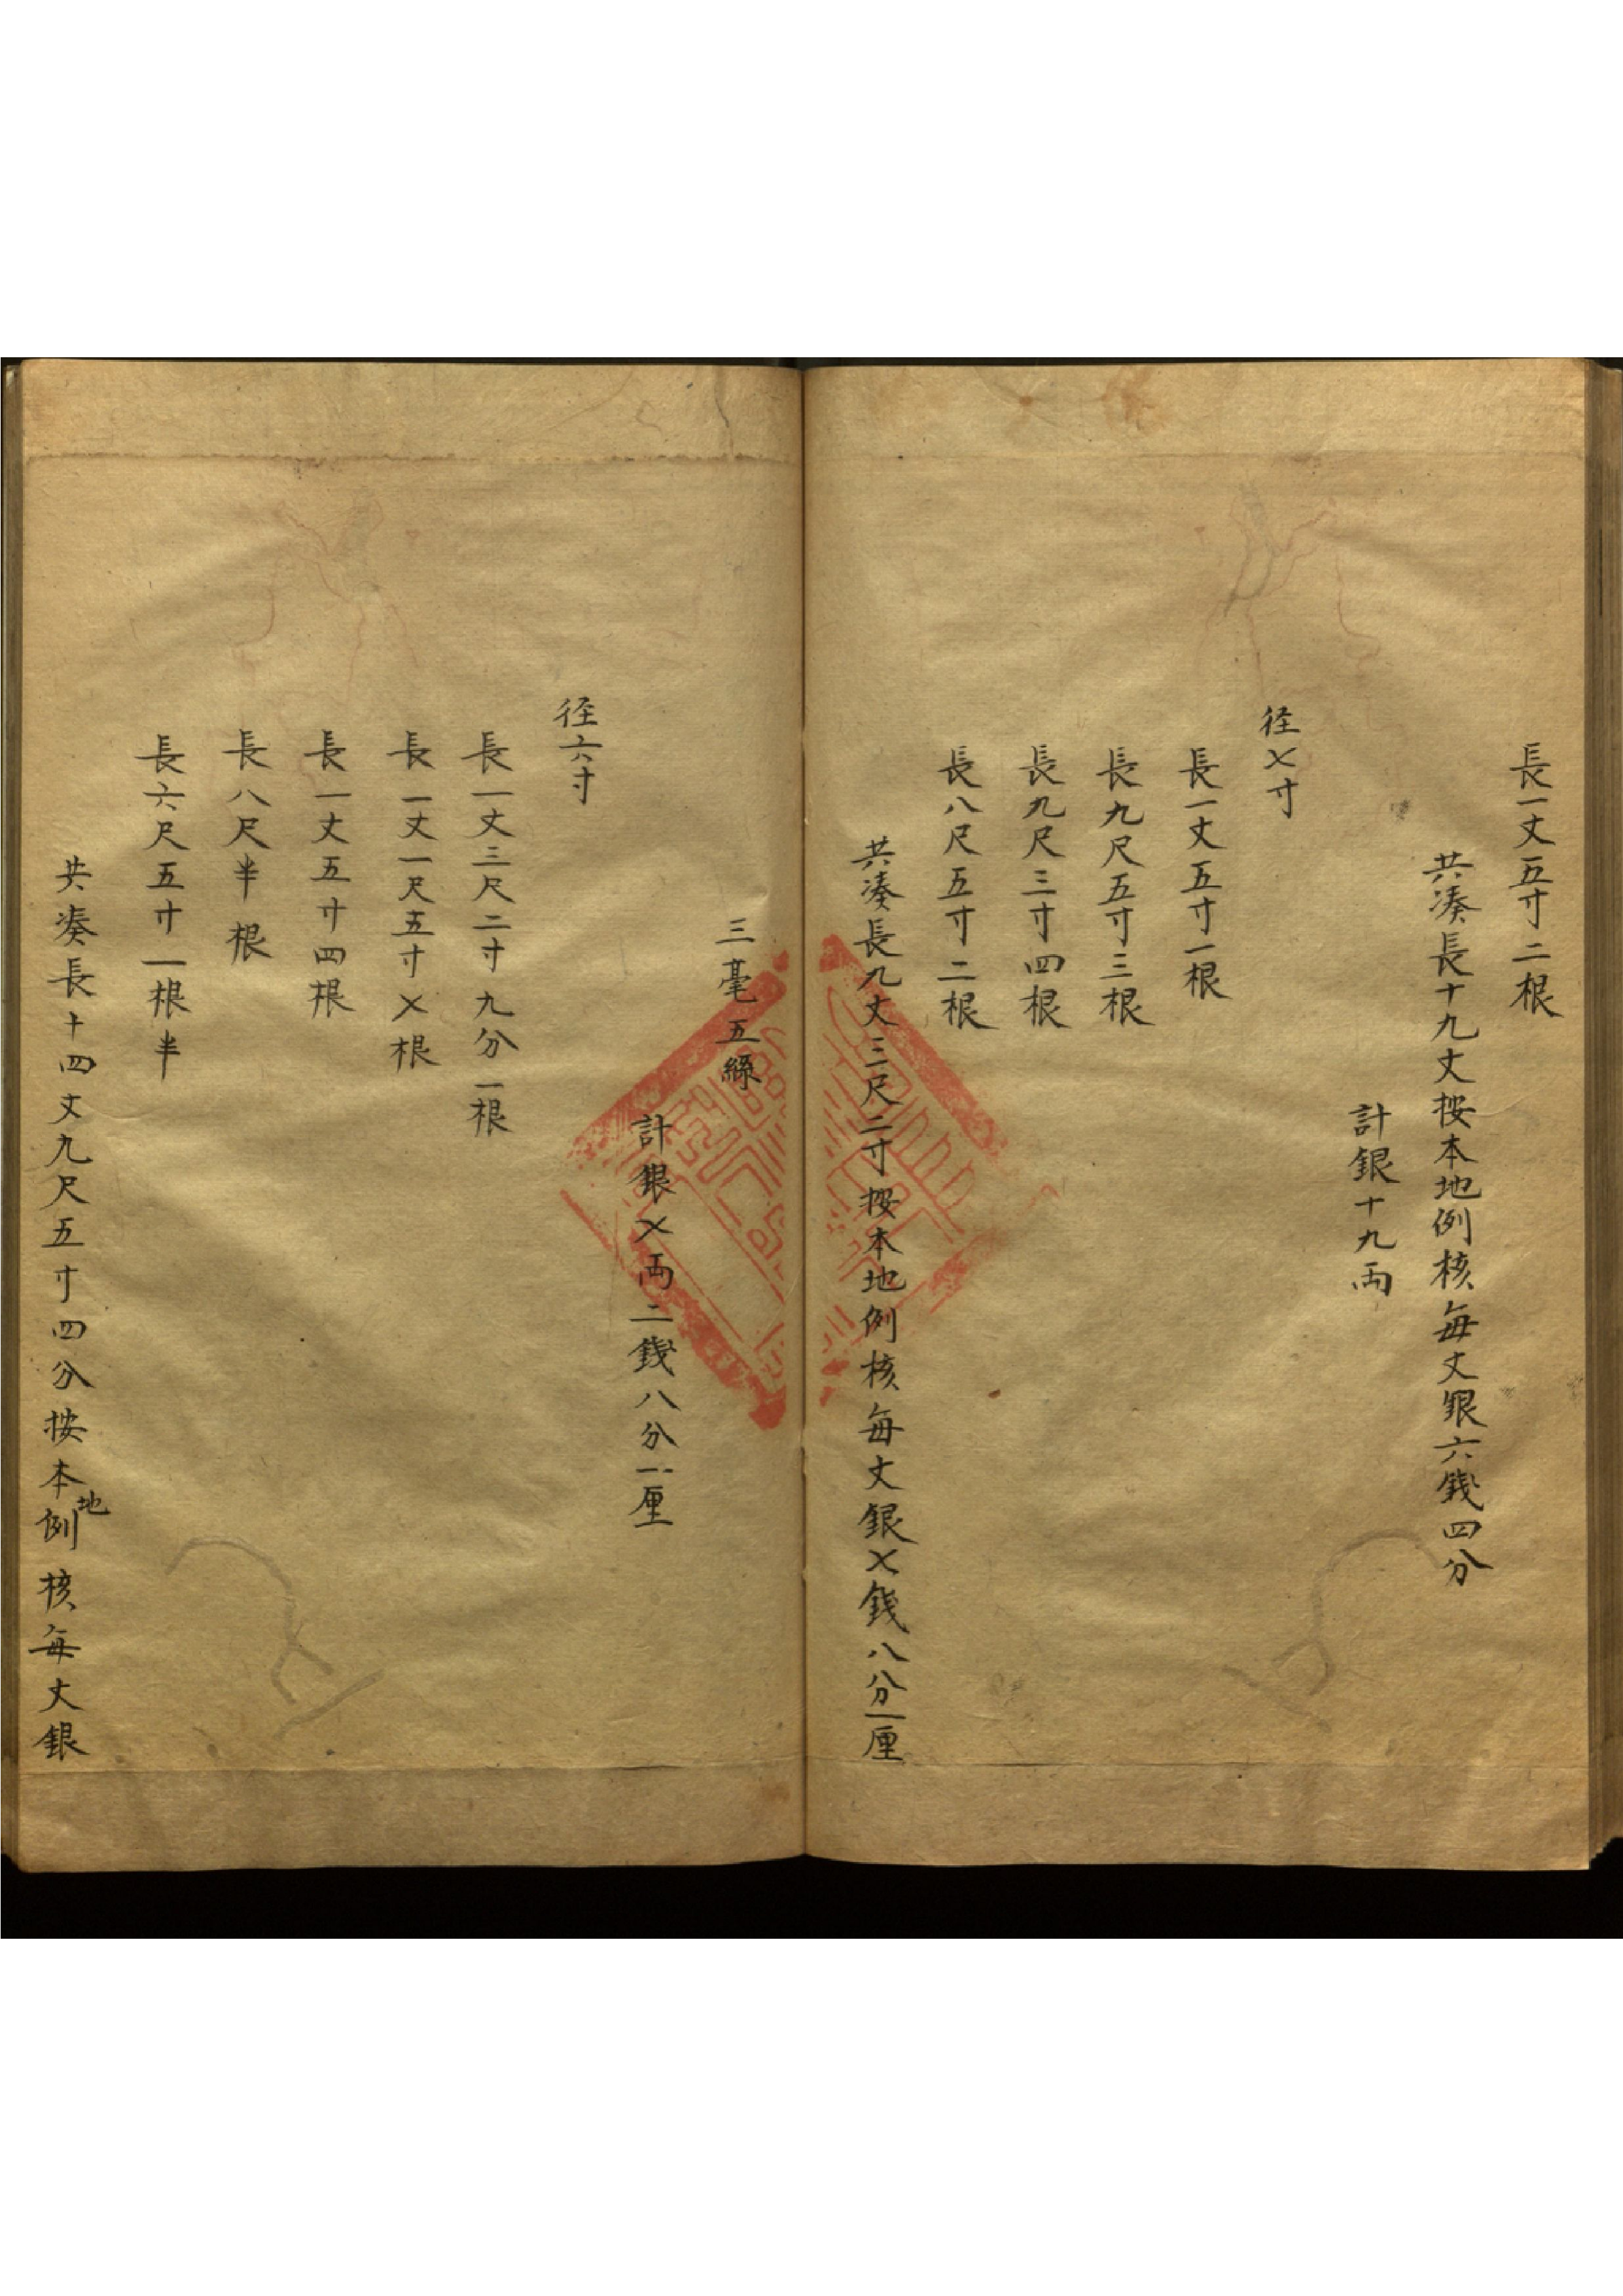 長一丈五寸二根
共湊長十九丈按本地例核每丈銀六錢四分
計銀十九両
径七寸
長一丈五寸一根
長九尺五寸三根
長九尺三寸四根
長八尺五寸二根
共湊長九丈三尺二寸按本地例核每丈銀七錢八分一厘
三毫五絲
計銀七両二錢八分一厘
径六寸
長一丈三尺二寸九分一根
長一丈一尺五寸七根
長一丈五寸四根
長八尺半根
長六尺五寸一根半
共湊長十四丈九尺五寸四分按本地例核每丈銀